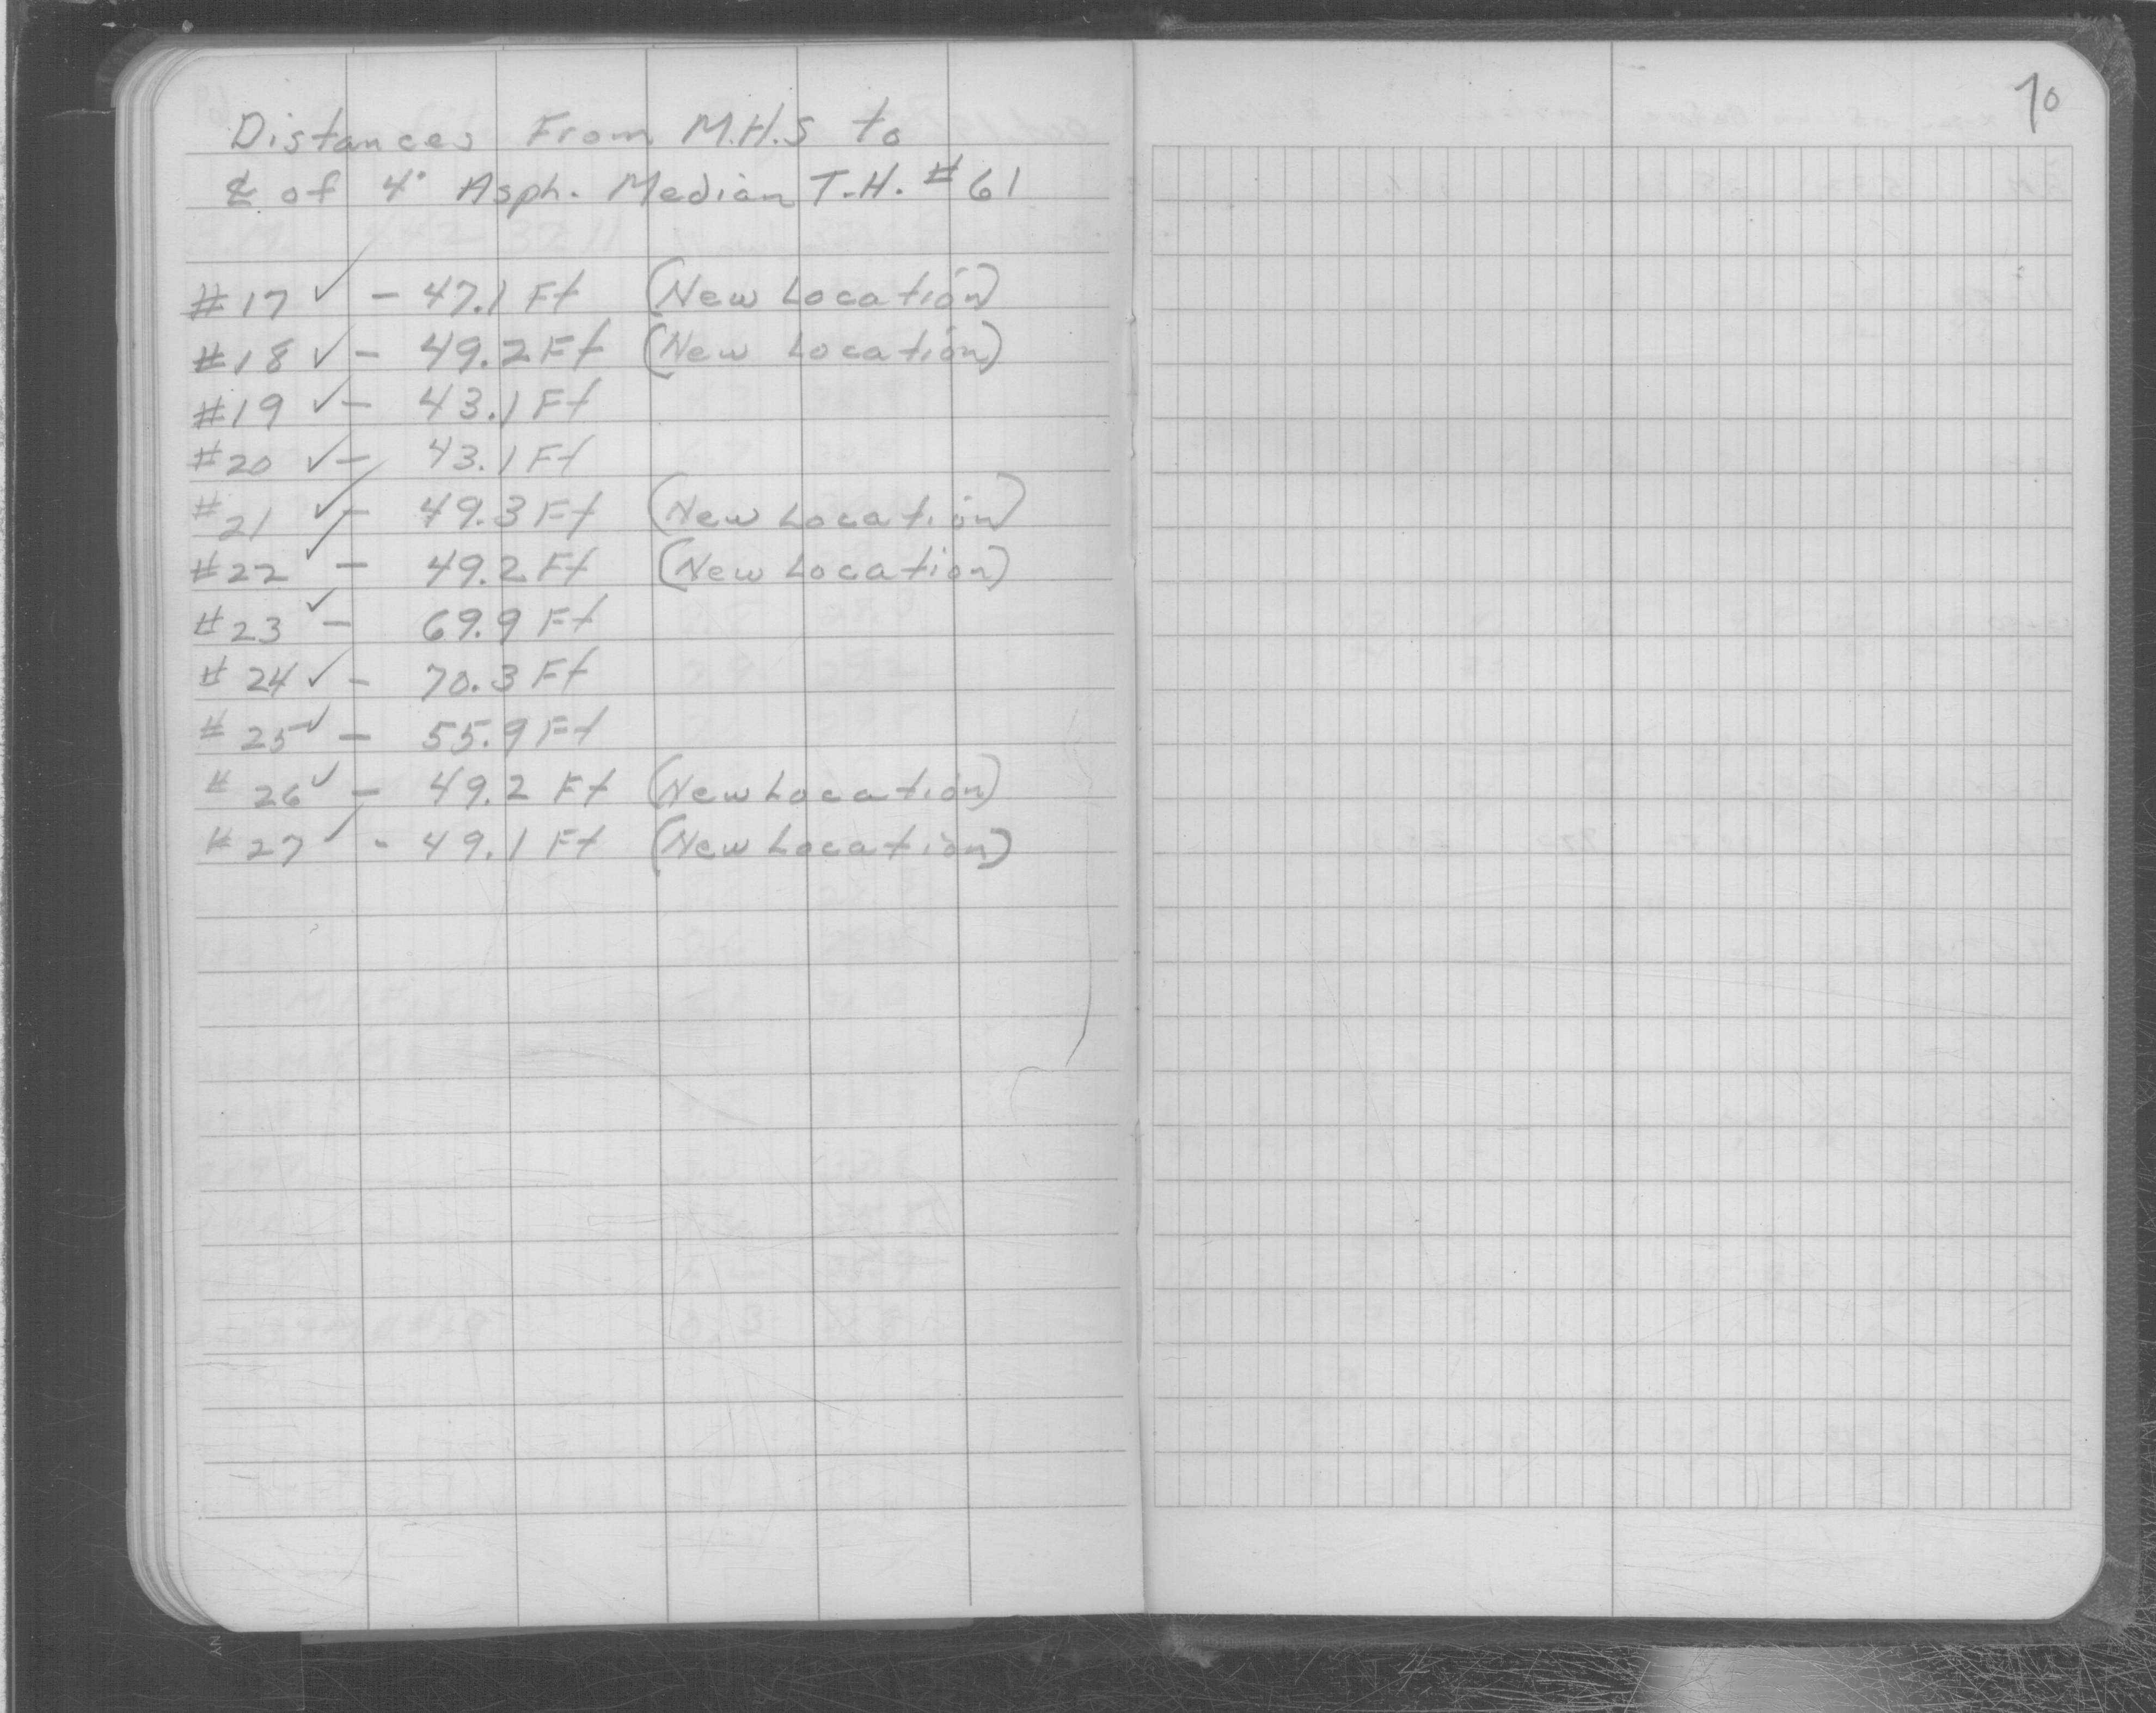 70
Distances From M.H.S to
℄ of 4' Asph. Median T.H. #61
#17 ✓ - 47.1 Ft (New Location)
#18 ✓ - 49.2 Ft (New Location)
#19 ✓ - 43.1 Ft
#20 ✓ - 43.1 Ft
#21 ✓ - 49.3 Ft (New Location)
#22 ✓ - 49.2 Ft (New Location)
#23 ✓ - 69.9 Ft
#24 ✓ - 70.3 Ft
#25 ✓ - 55.9 Ft
#26 ✓ - 49.2 Ft (New Location)
#27 ✓ - 49.1 Ft (New Location)